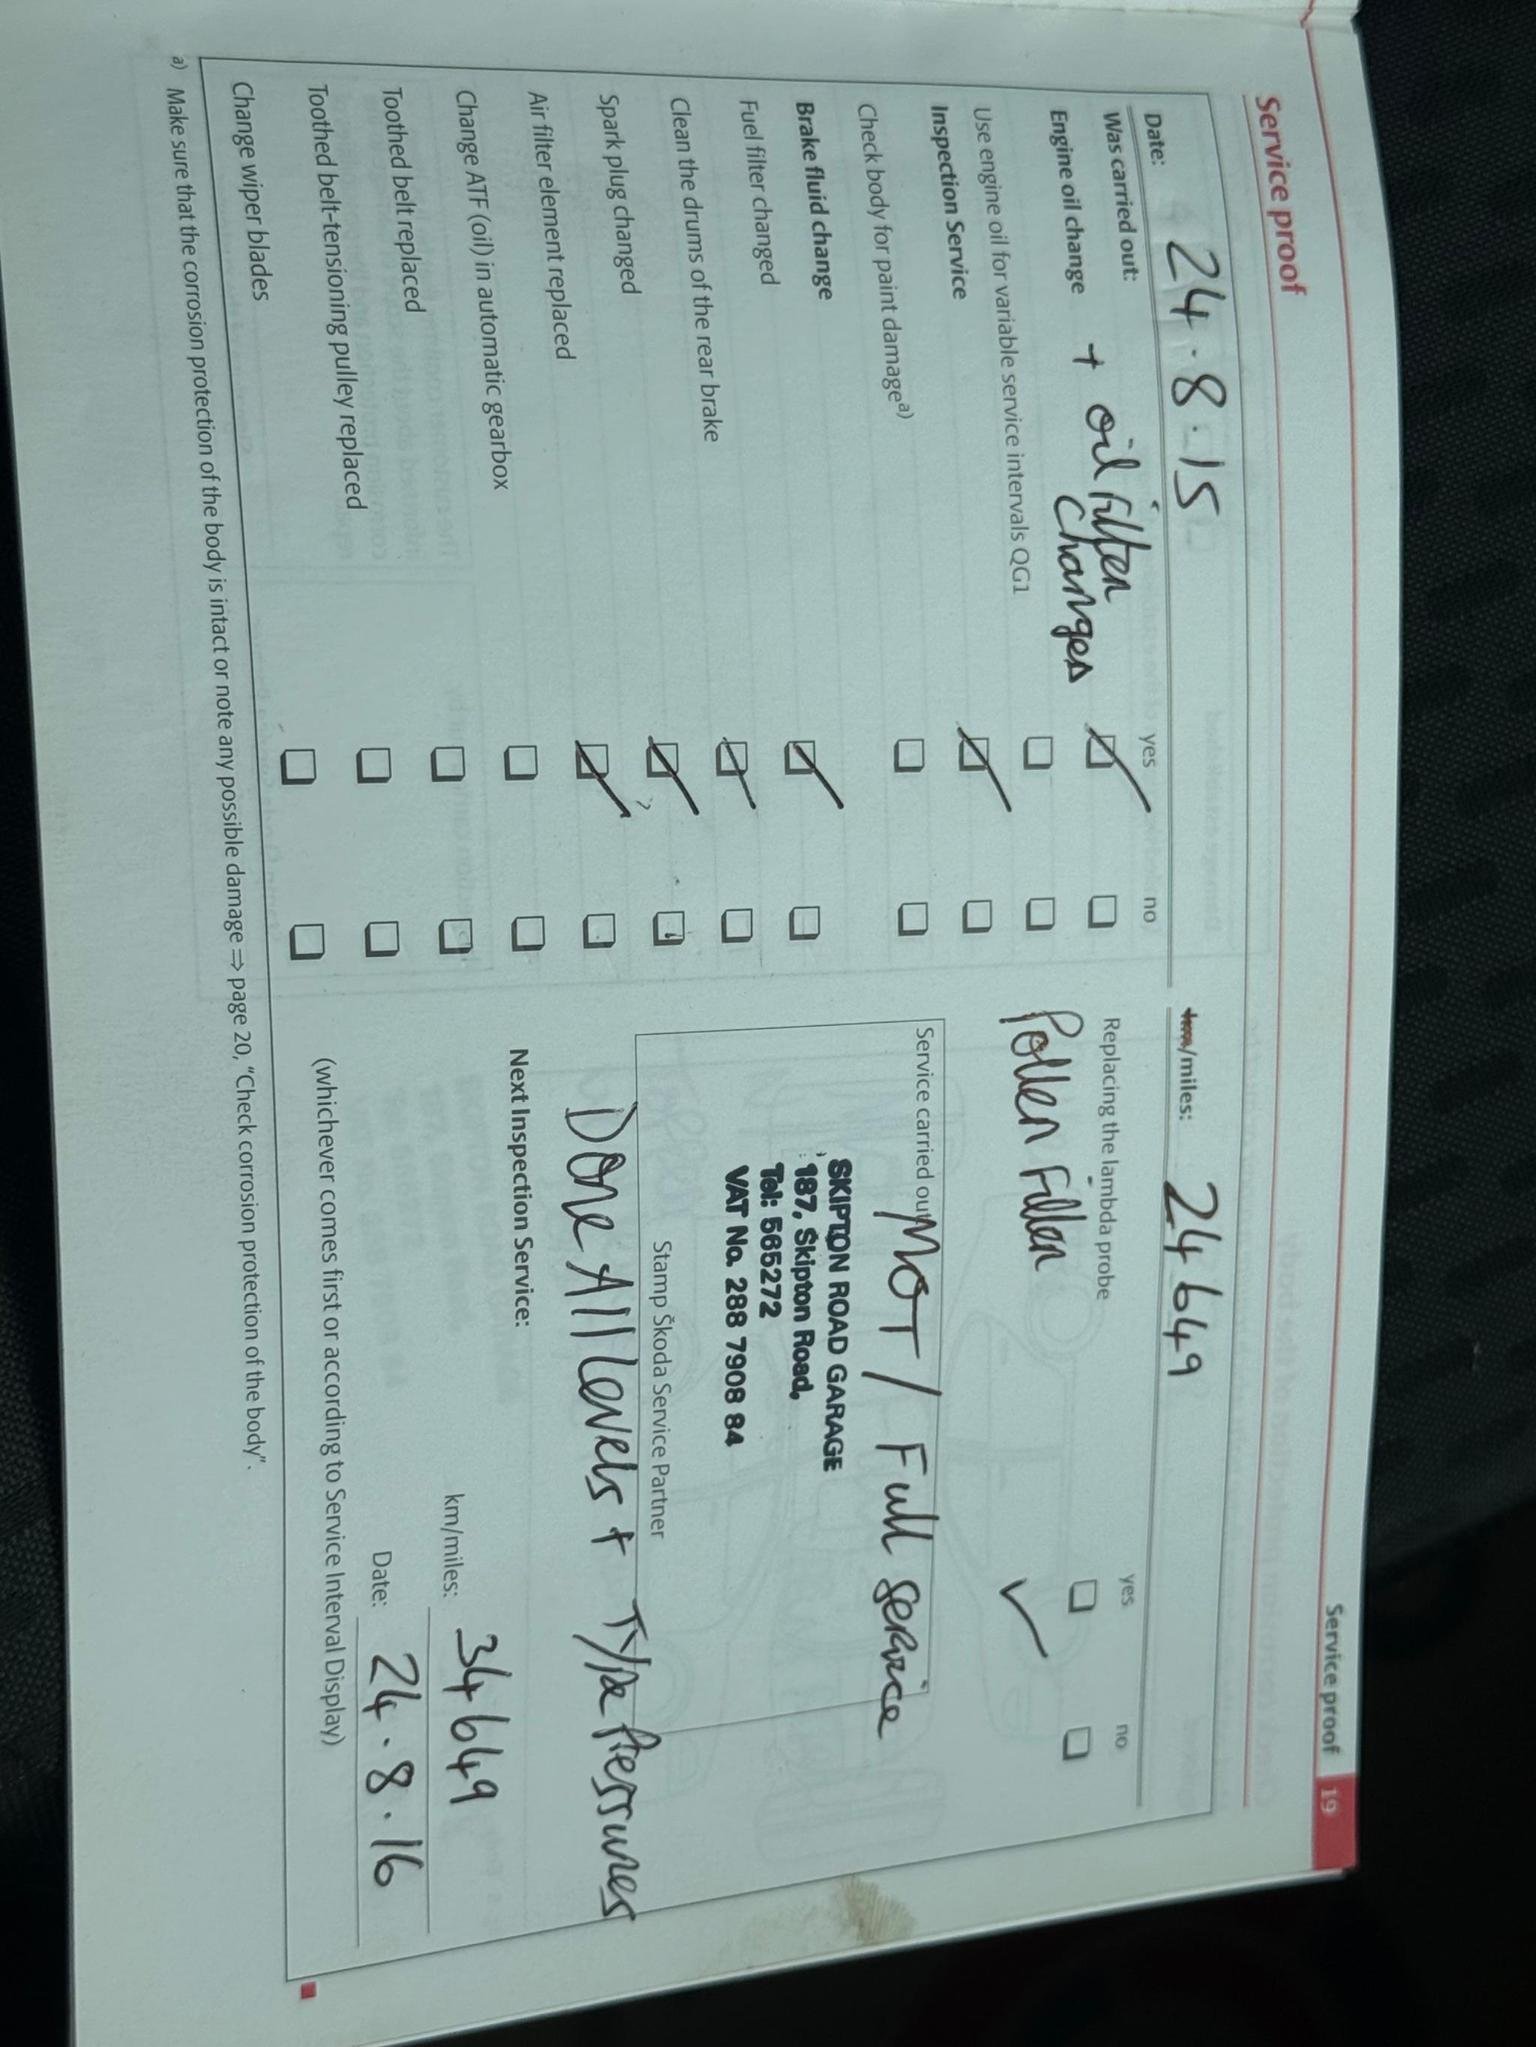 Service proof 19
Service proof
Date: 24.8.15
Was carried out: yes no
Engine oil change + oil filter
Changes
Use engine oil for variable service intervals QG1
Inspection Service
Check body for paint damage a)
Brake fluid change
Fuel filter changed
Clean the drums of the rear brake
Spark plug changed
Air filter element replaced
Change ATF (oil) in automatic gearbox
Toothed belt replaced
Toothed belt-tensioning pulley replaced
Change wiper blades
km/miles: 24649
yes no
Replacing the lambda probe
Pollen Filter ✓
Service carried out
MOT / Full service
SKIPTON ROAD GARAGE
187, Skipton Road,
Tel: 565272
VAT No. 288 7908 84
Stamp Škoda Service Partner
Done All Levels + Tyre Pressures
Next Inspection Service:
km/miles: 34649
Date: 24.8.16
(whichever comes first or according to Service Interval Display)
a) Make sure that the corrosion protection of the body is intact or note any possible damage ⇒ page 20, "Check corrosion protection of the body".